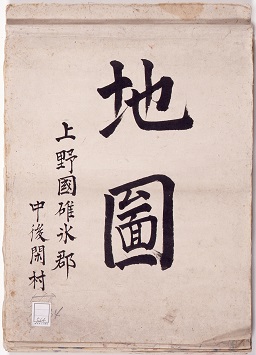 地圖
上野國碓氷郡
中後閑村